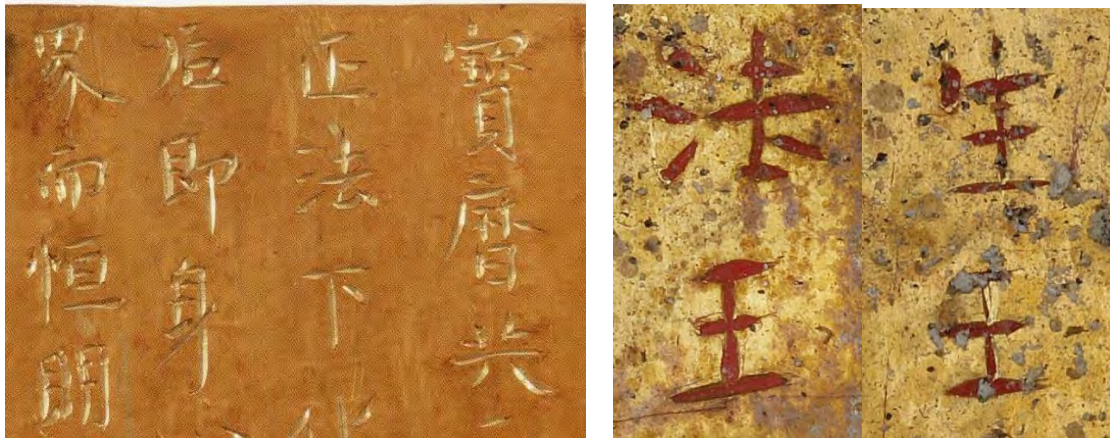 寶曆共
正法下
后即身
界而恒明
法王
生王